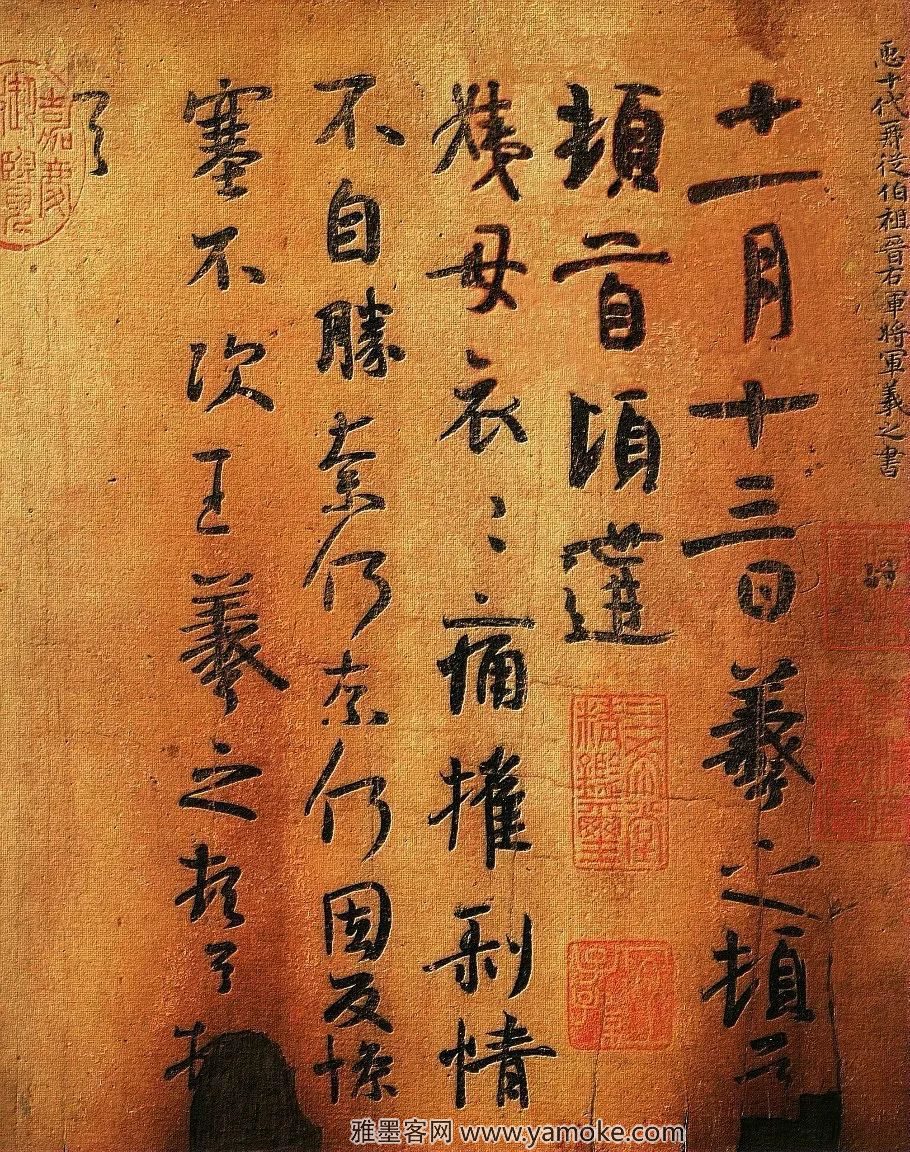 𢘑十代再從伯祖晉右軍將軍羲之書
十一月十三日羲之頓首
頓首頃遘
三希堂精鑑璽
宜子孫
姨母哀〻痛摧剝情
不自勝奈何奈何因反慘
塞不次王羲之頓首頓
首
嘉慶御覽
雅墨客网 www.yamoke.com